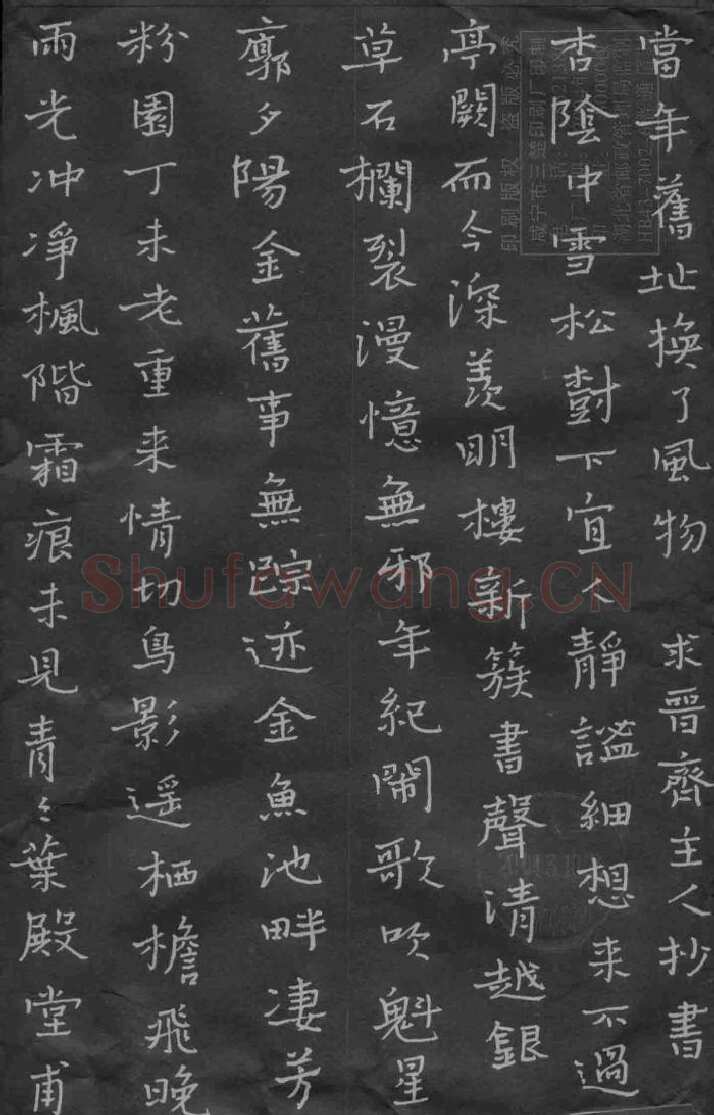 雨光冲淨楓階霜痕未見青々葉殿堂甫
粉園丁未老重来情切鳥影遥栖檐飛晚
廓夕陽金舊事無踪迹金魚池畔淒芳
草石欄裂漫憶無邪年紀鬧歌吹魁星
亭闕而今深羡明樓新簇書聲清越銀
杏陰中雪松樹下宜人靜謐細想来不過
當年舊址換了風物 求晉齋主人抄書
Shufawang.CN